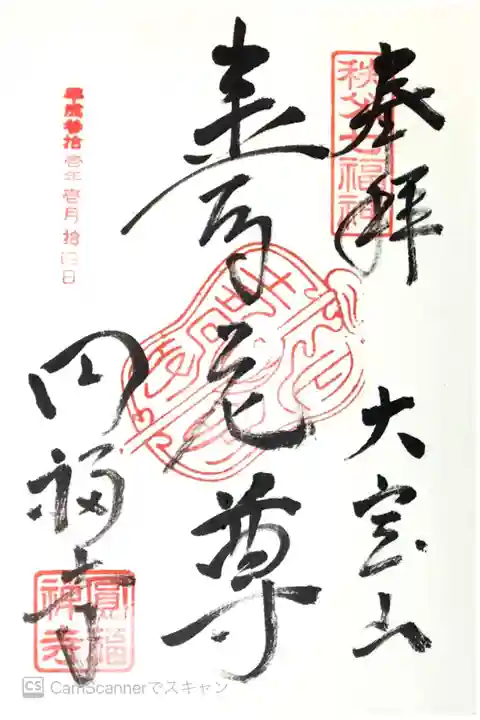 奉拝
秩父七福神
大宝山
寿老尊
円福寺
圓福禅寺
平成参拾壱年壱月拾四日
CS CamScannerでスキャン